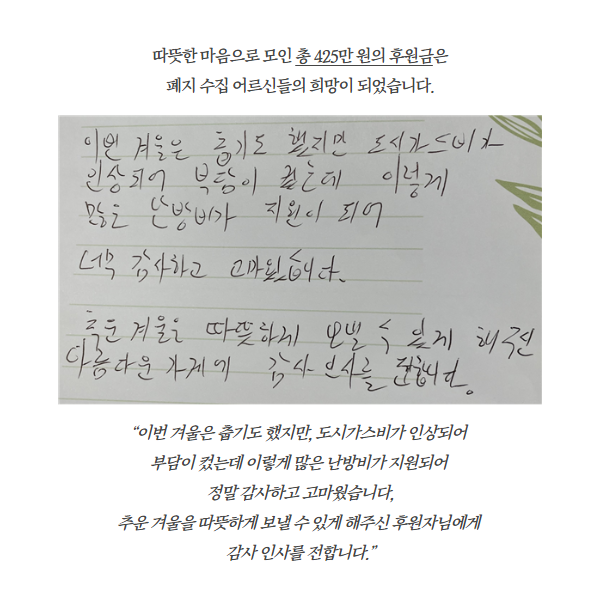 따뜻한 마음으로 모인 총 425만 원의 후원금은
폐지 수집 어르신들의 희망이 되었습니다.
이번 겨울은 춥기도 했지만 도시가스비가
인상되어 부담이 컸는데 이렇게
많은 난방비가 지원이 되어
너무 감사하고 고마웠습니다.
추운 겨울을 따뜻하게 보낼 수 있게 해주신
아름다운 가게에 감사 인사를 전합니다.
“이번 겨울은 춥기도 했지만, 도시가스비가 인상되어
부담이 컸는데 이렇게 많은 난방비가 지원되어
정말 감사하고 고마웠습니다,
추운 겨울을 따뜻하게 보낼 수 있게 해주신 후원자님에게
감사 인사를 전합니다.”